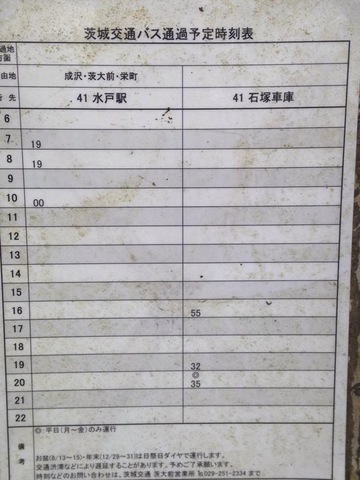 茨城交通バス通過予定時刻表
由地 成沢・茨大前・栄町
先 41 水戸駅 41 石塚車庫
6
7 19
8 19
9
10 00
11
12
13
14
15
16 55
17
18
19 32
20 ◎ 35
21
22
備考
◎:平日(月～金)のみ運行
お盆(8/13～15)・年末(12/29～31)は日祭日ダイヤで運行します。
交通渋滞などにより遅延することがあります。予めご了承願います。
時刻などのお問い合わせは、茨城交通 茨大前営業所 ℡029-251-2334 まで